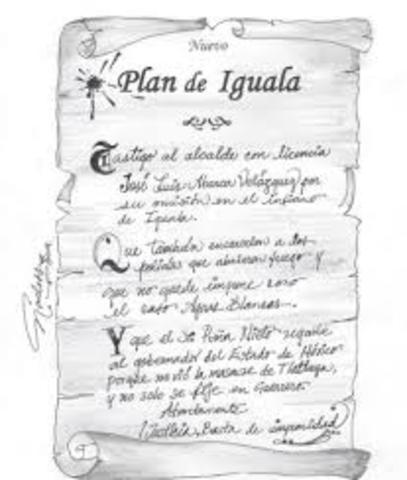 Nuevo
Plan de Iguala
Castigo al alcalde con licencia
José Luis Abarca Velázquez por
su omisión en el
de Iguala.
Que también encarcelen a los
policías que abrieron fuego y
que no quede impune como
el caso Aguas Blancas.
Y que el Sr. Peña Nieto regañe
al gobernador del Estado de México
porque no vió la masacre de Tlatlaya,
y no solo se fije en Guerrero
Atentamente
Justicia, Basta de impunidad